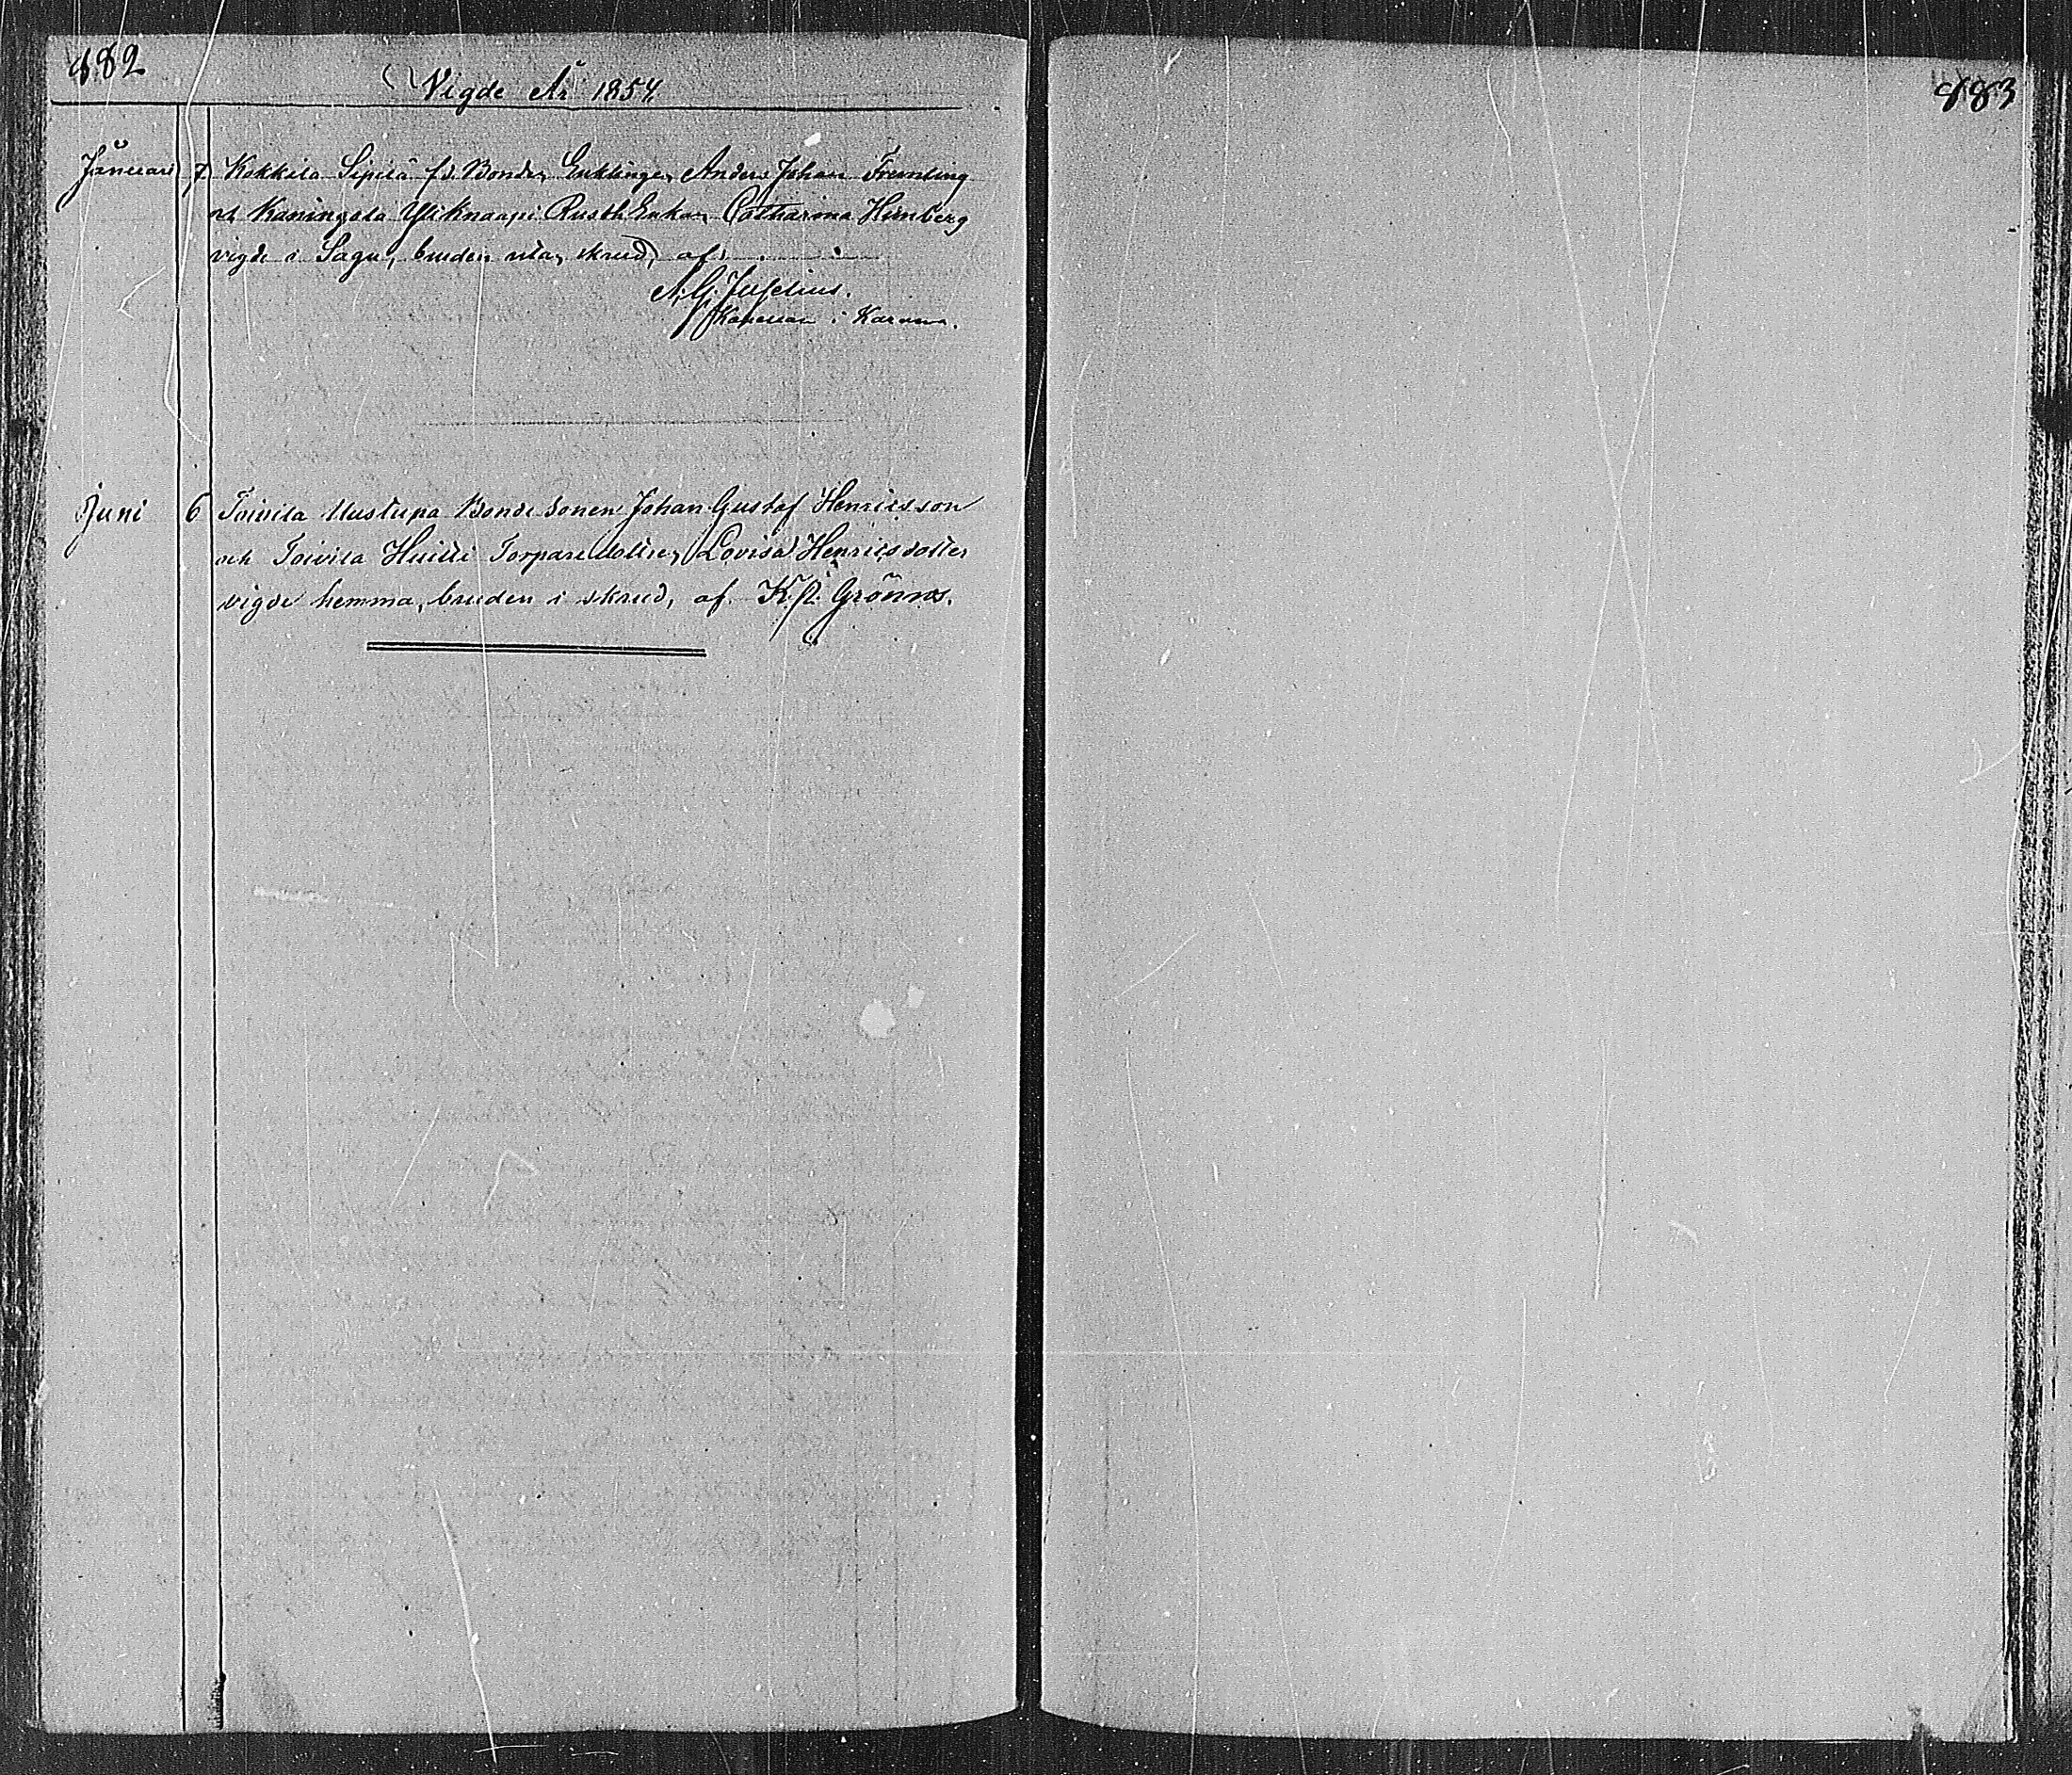 882
Vigde År 1854.
883
Januari 7 Kokkila Sipilä f.d. Bonden Enklingen Anders Johan Fremling
och Kaningola Yliknaapi Rusth Enkan Catharina Hemberg
vigde i Sagu, bruden utan skrud, af
A. G. Juselius.
Kapellan i Karuna.
Juni 6 Toivila Uustupa Bonde Sonen Johan Gustaf Henricsson
och Toivila Huitti Torpare dottren Lovisa Henricsdotter
vigde hemma, bruden i skrud, af Grönroos.